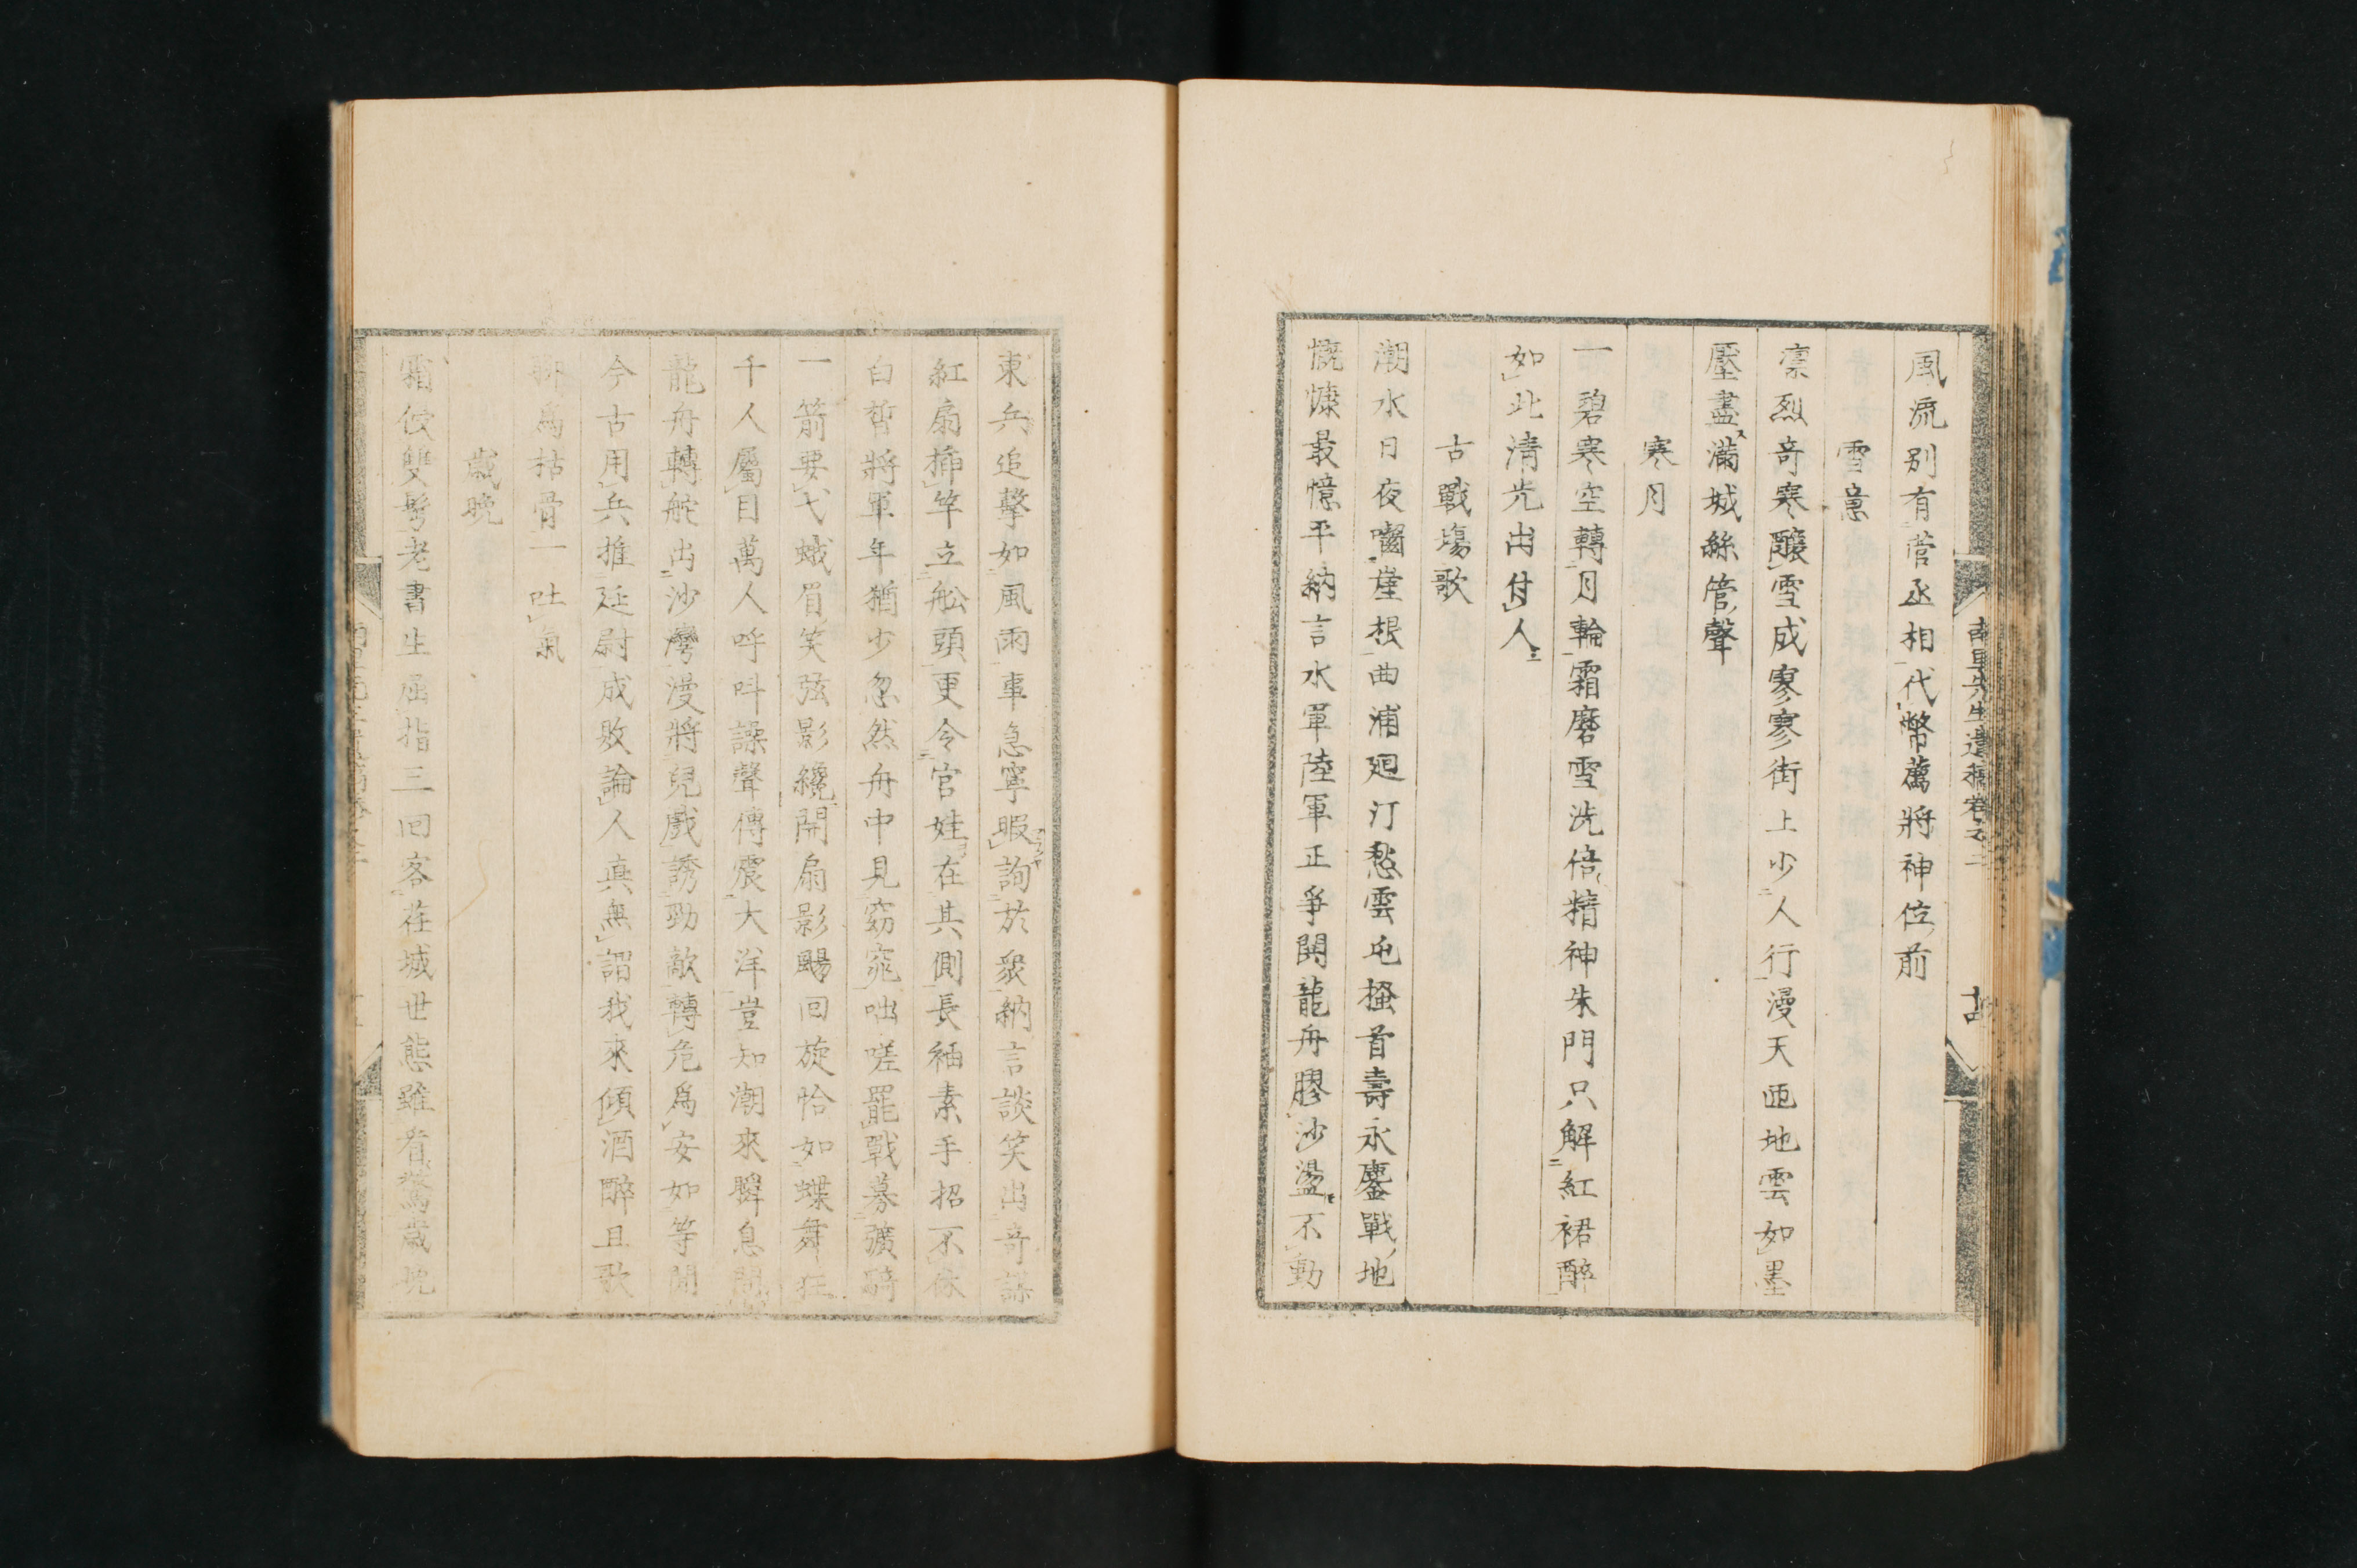 風流別有菅丞相代幣萬將神位前
雪意
凛烈奇寒釀雪成寥寥街上少人行漫天匝地雲如墨
壓盡滿城絲管聲
寒月
一碧寒空轉月輪霜磨雪洗倍精神朱門只解紅裙醉
如此清光出付人
古戰場歌
潮水日夜嚙崖根曲浦廻汀愁雲屯搔首壽永鏖戰地
慨慷最憶平納言水軍陸軍正爭鬪龍舟膠沙盪不動
東兵追擊如風雨事急寧暇詢於衆納言談笑出奇謀
紅扇揷竿立舩頭更令官娃在其側長袖素手招不休
白皙將軍年猶少忽然舟中見窈窕咄嗟罷戰募彍騎
一箭要弋蛾眉笑弦影纔開扇影颺回旋恰如蝶舞狂
千人屬目萬人呼叫譟聲傳震大洋豈知潮來瞬息間
龍舟轉舵出沙灣漫將兒戲誘勁敵轉危爲安如等閒
今古用兵推廷尉成敗論人真無謂我來傾酒醉且歌
聊爲枯骨一吐氣
歳晩
霜侵雙鬂老書生屈指三回客荏城世態雖看驚歳晩
南里先生遺稿卷之二